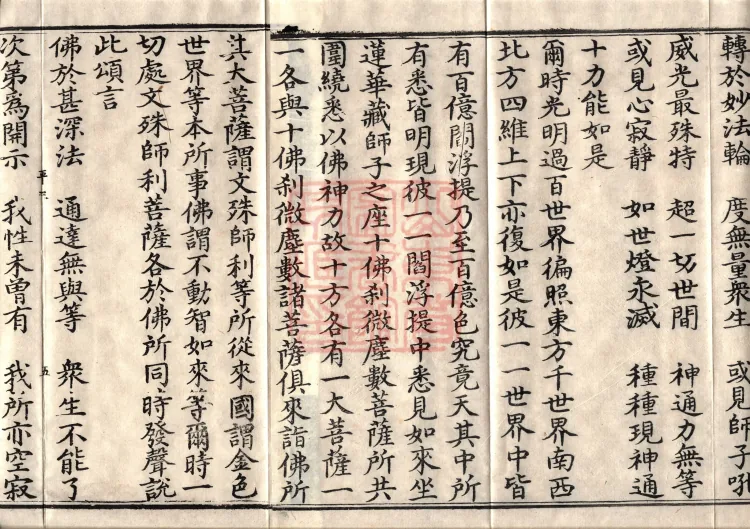 轉於妙法輪　度無量衆生　或見師子吼
威光最殊特　超一切世間　神通力無等
或見心寂靜　如世燈永滅　種種現神通
十力能如是
爾時光明過百世界徧照東方千世界南西
北方四維上下亦復如是彼一一世界中皆
有百億閻浮提乃至百億色究竟天其中所
有悉皆明現彼一一閻浮提中悉見如來坐
蓮華藏師子之座十佛刹微塵數菩薩所共
圍繞悉以佛神力故十方各有一大菩薩一
一各與十佛刹微塵數諸菩薩俱來詣佛所
其大菩薩謂文殊師利等所從來國謂金色
世界等本所事佛謂不動智如來等爾時一
切處文殊師利菩薩各於佛所同時發聲說
此頌言
佛於甚深法　通達無與等　衆生不能了
次第爲開示　我性未曾有　我所亦空寂